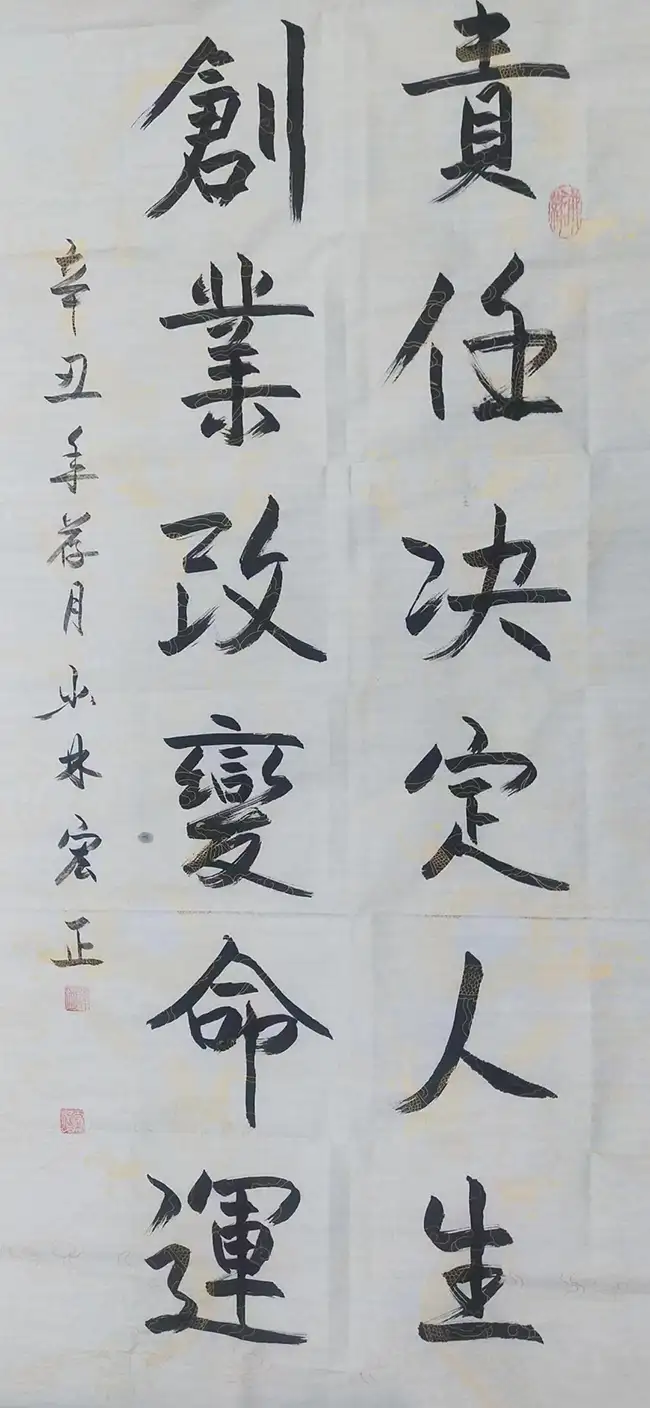 責任决定人生
創業改變命運
辛丑年荷月少林宏正